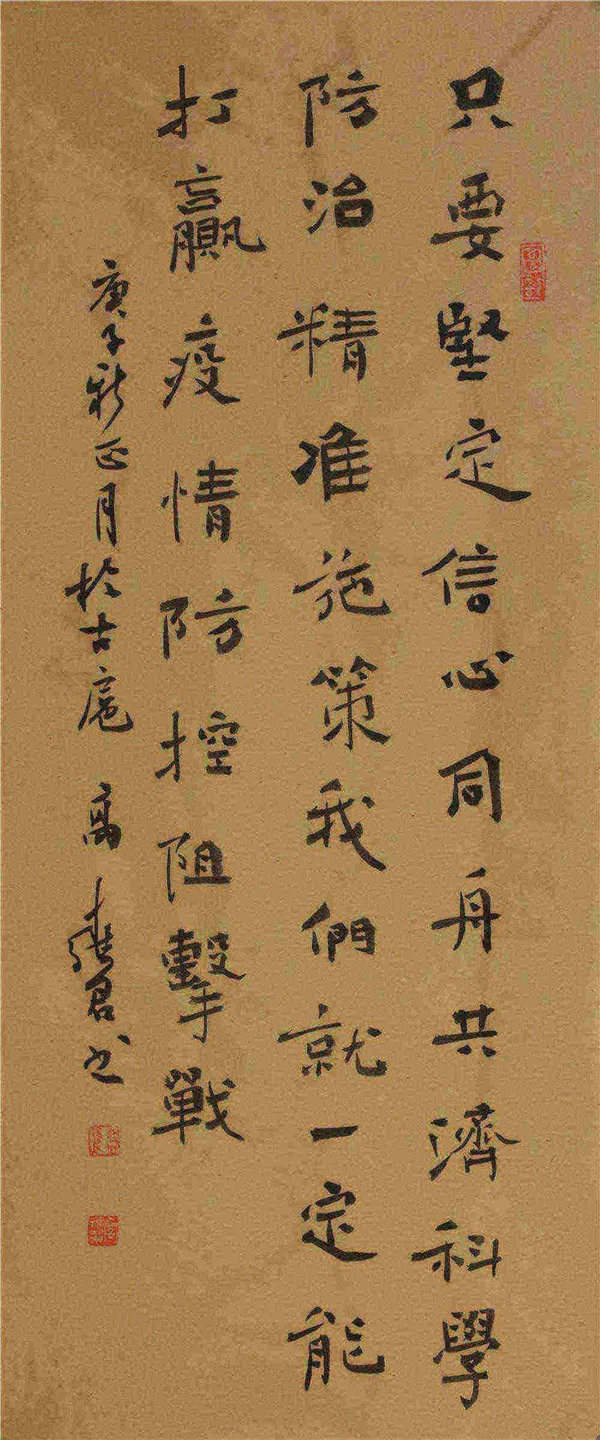 只要堅定信心同舟共濟科學
防治精准施策我們就一定能
打贏疫情防控阻擊戰
庚子新正月於古扈 高 書